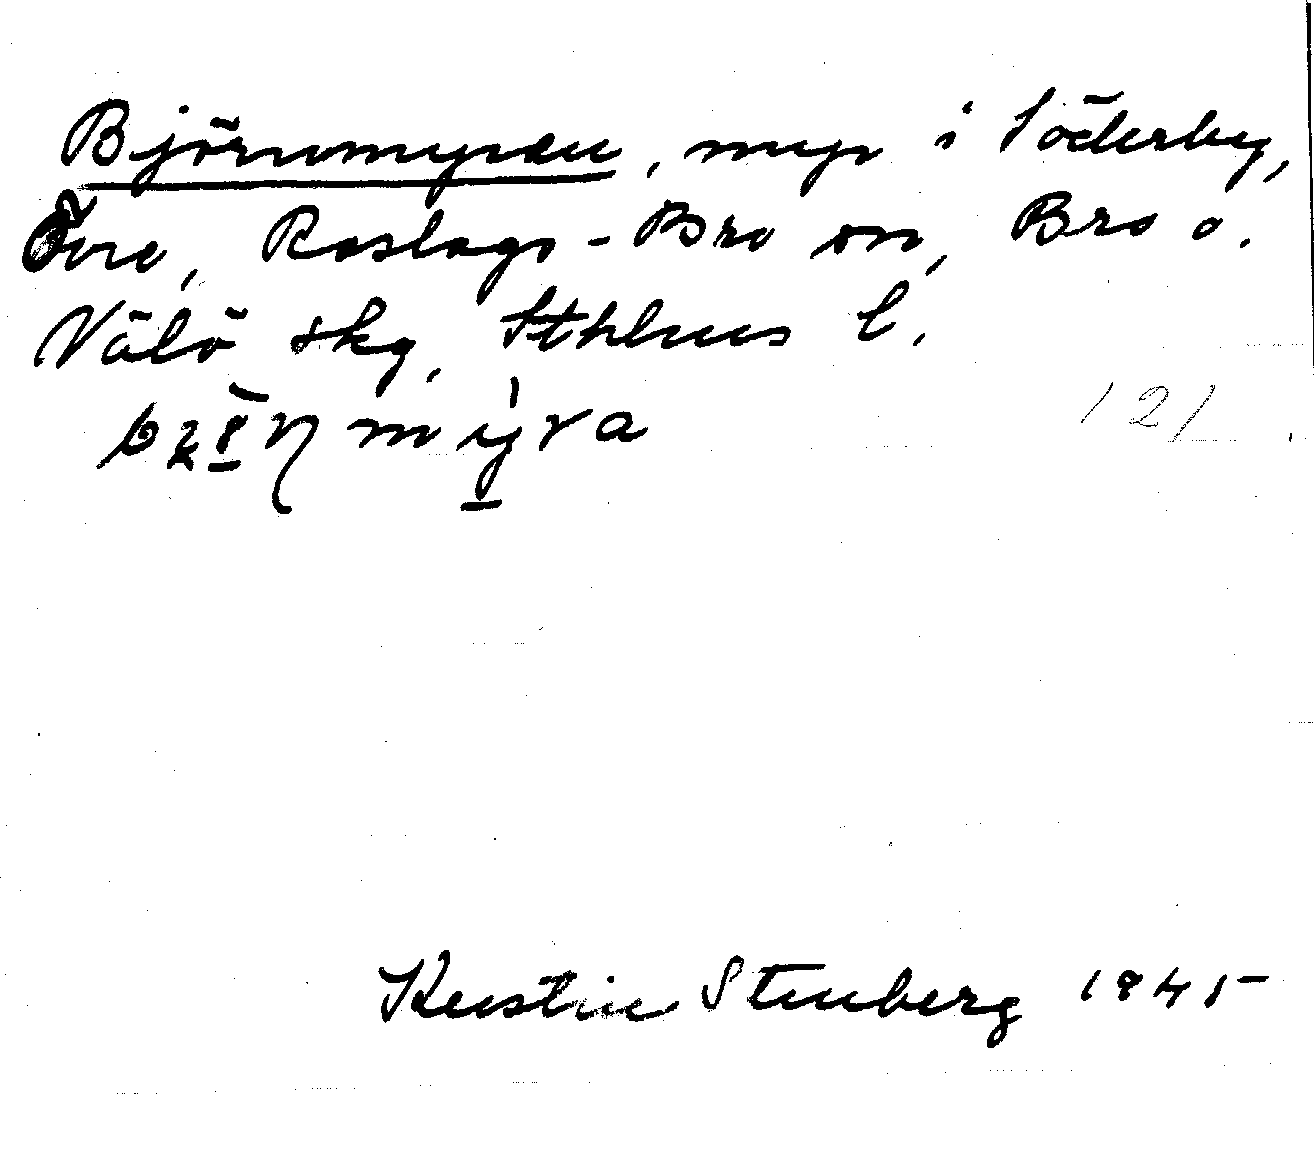 Björnmyran, myr i Söderby,
Övre, Roslags-Bro sn, Bro o.
Vätö skg, Sthlms l.
121
Kerstin Stenberg 1945